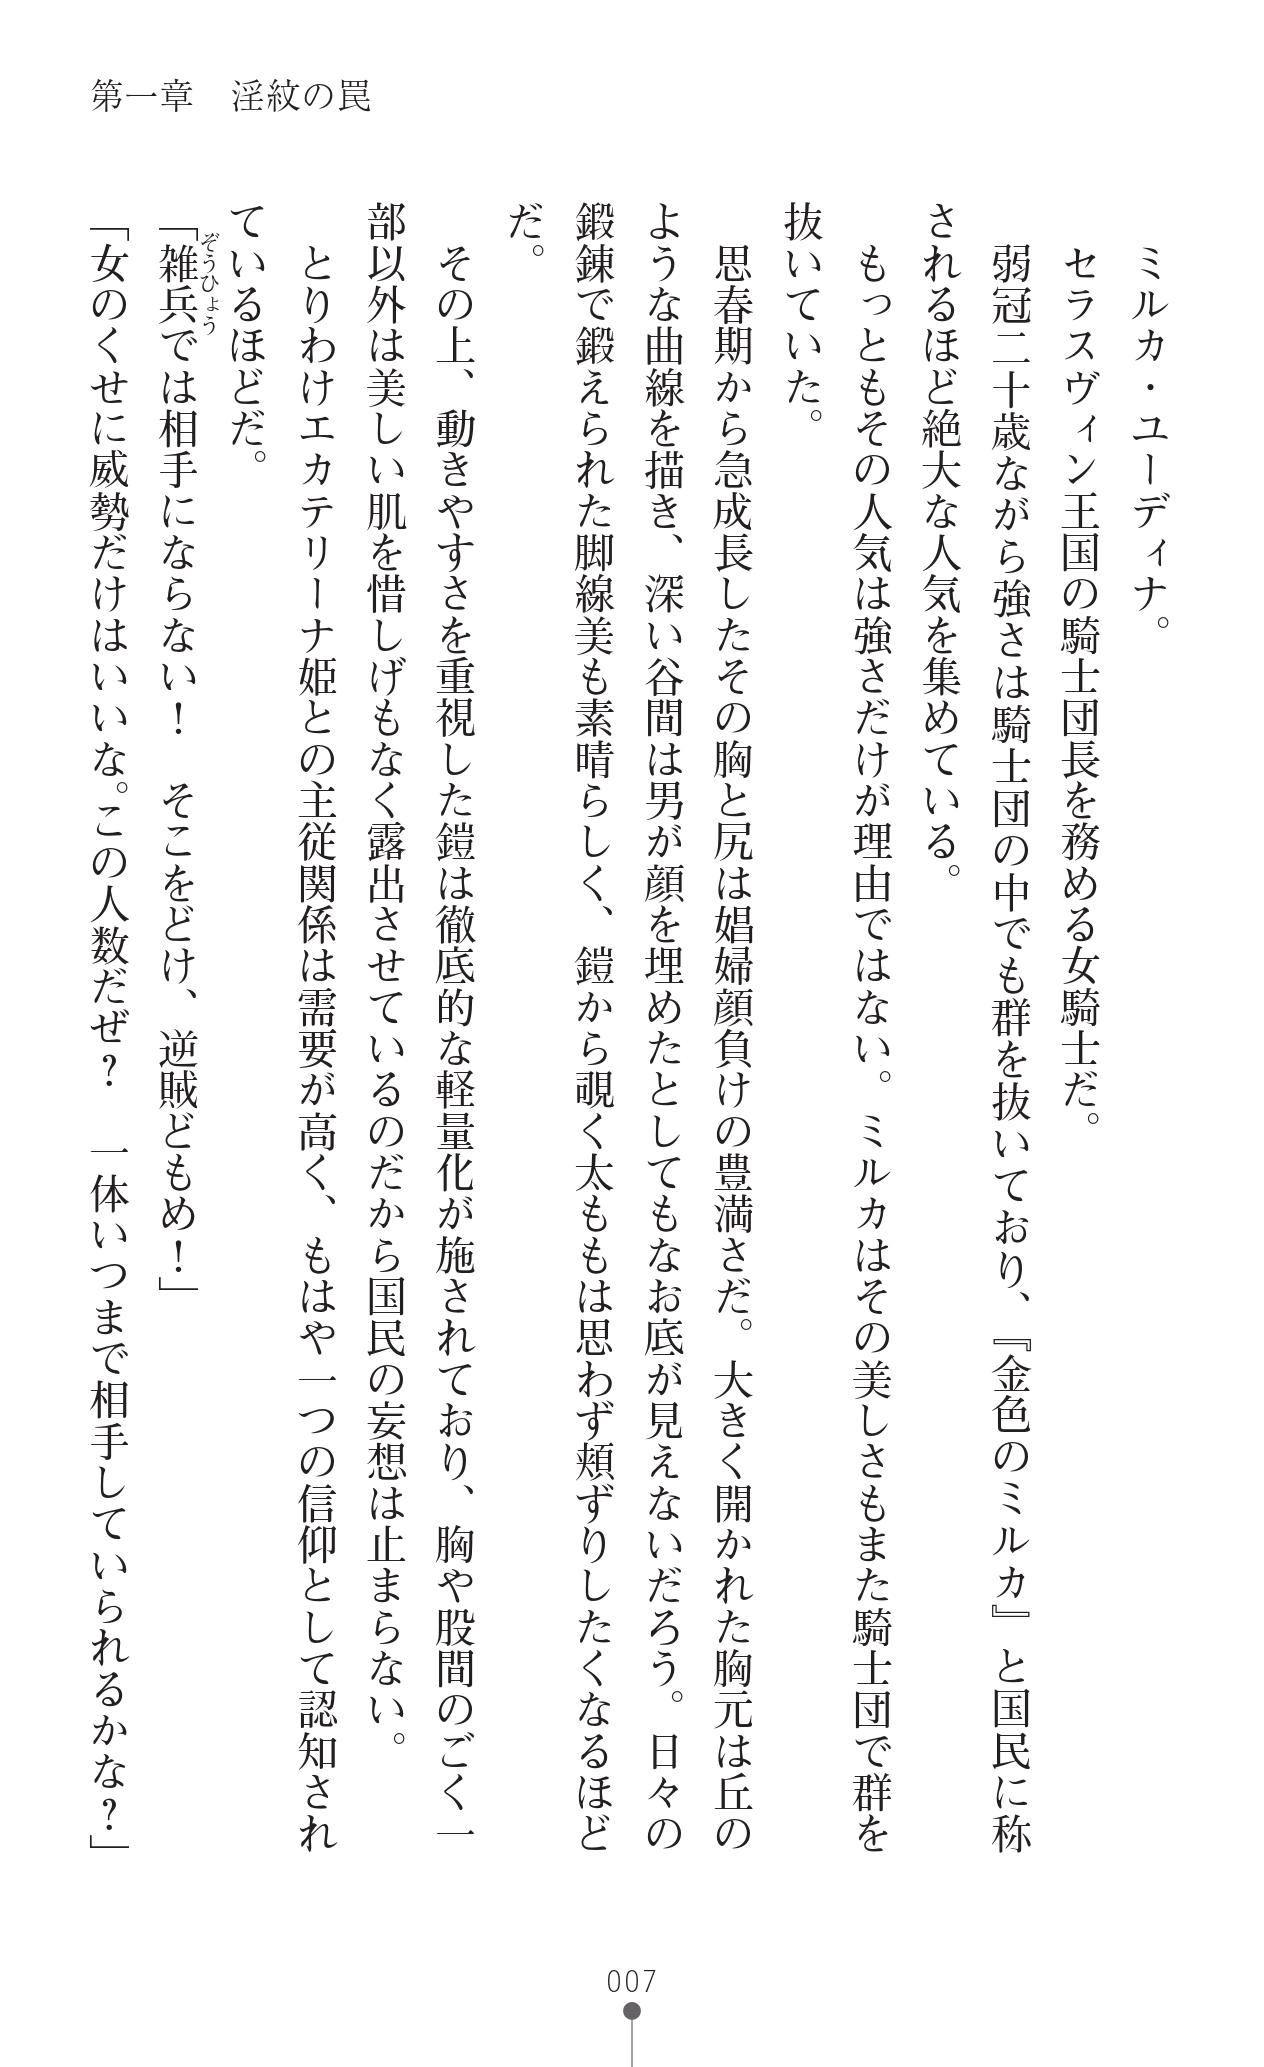 第一章　淫紋の罠
　ミルカ・ユーディナ。
　セラスヴィン王国の騎士団長を務める女騎士だ。
　弱冠二十歳ながら強さは騎士団の中でも群を抜いており、『金色のミルカ』と国民に称
されるほど絶大な人気を集めている。
　もっともその人気は強さだけが理由ではない。ミルカはその美しさもまた騎士団で群を
抜いていた。
　思春期から急成長したその胸と尻は娼婦顔負けの豊満さだ。大きく開かれた胸元は丘の
ような曲線を描き、深い谷間は男が顔を埋めたとしてもなお底が見えないだろう。日々の
鍛錬で鍛えられた脚線美も素晴らしく、鎧から覗く太ももは思わず頬ずりしたくなるほど
だ。
　その上、動きやすさを重視した鎧は徹底的な軽量化が施されており、胸や股間のごく一
部以外は美しい肌を惜しげもなく露出させているのだから国民の妄想は止まらない。
　とりわけエカテリーナ姫との主従関係は需要が高く、もはや一つの信仰として認知され
ているほどだ。
ぞうひょう
「雑兵では相手にならない！　そこをどけ、逆賊どもめ！」
「女のくせに威勢だけはいいな。この人数だぜ？　一体いつまで相手していられるかな？」
007